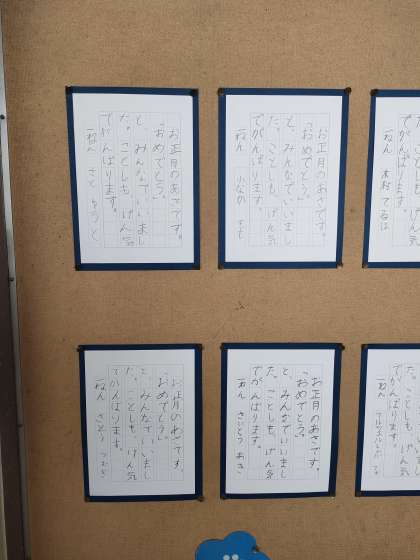 お正月のあさです。
「おめでとう。」
と、みんなでいいまし
た。ことしも、げん気
でがんばります。
一ねん
お正月のあさです。
「おめでとう。」
と、みんなでいいまし
た。ことしも、げん気
でがんばります。
一ねん
た。ことしも、げん気
でがんばります。
一ねん 木村 てるは
お正月のあさです。
「おめでとう。」
と、みんなでいいまし
た。ことしも、げん気
でがんばります。
一ねん さとう つむぎ
お正月のあさです。
「おめでとう。」
と、みんなでいいまし
た。ことしも、げん気
でがんばります。
一ねん さいとう あさ
た。ことしも、げん気
でがんばります。
一ねん